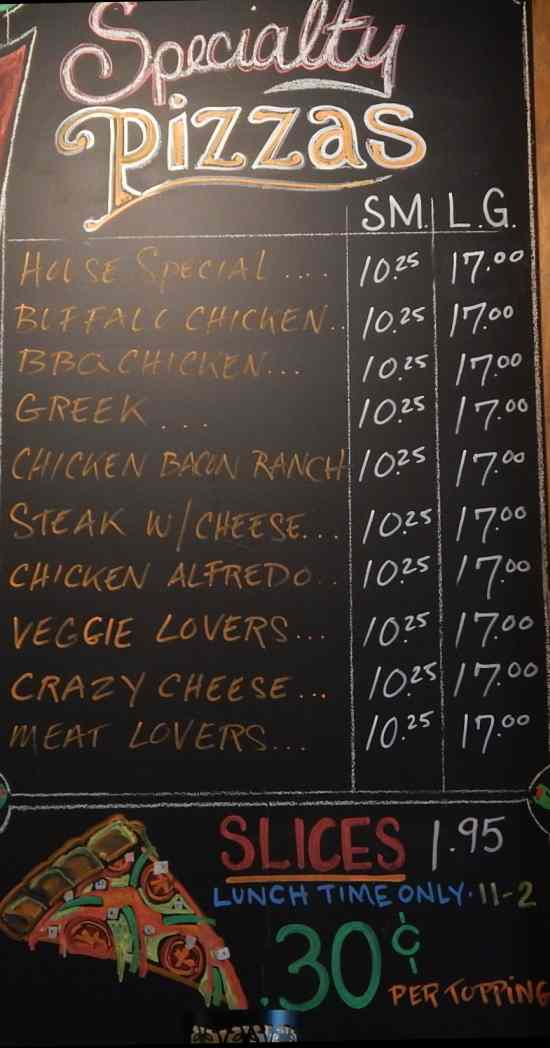 Specialty
Pizzas
SM. L.G.
HOUSE SPECIAL .... 10.25 17.00
BUFFALO CHICKEN.. 10.25 17.00
BBQ CHICKEN... 10.25 17.00
GREEK ... 10.25 17.00
CHICKEN BACON RANCH 10.25 17.00
STEAK W/CHEESE... 10.25 17.00
CHICKEN ALFREDO.. 10.25 17.00
VEGGIE LOVERS... 10.25 17.00
CRAZY CHEESE... 10.25 17.00
MEAT LOVERS... 10.25 17.00
SLICES 1.95
LUNCH TIME ONLY·11-2
.30¢ PER TOPPING